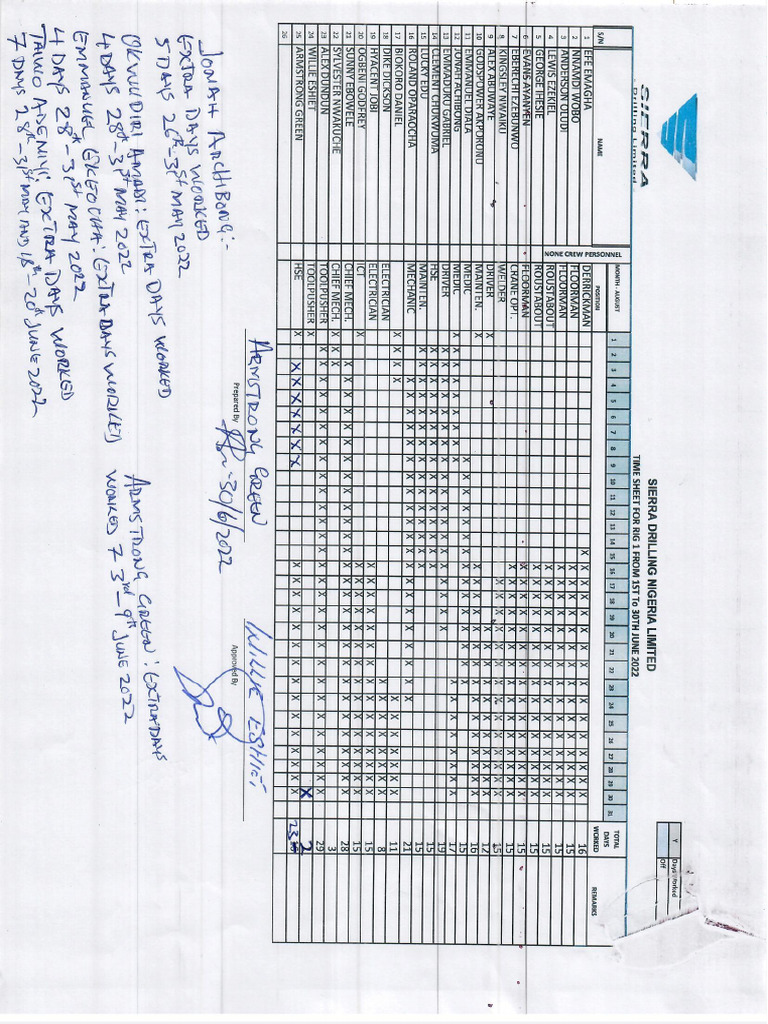 SIERRA
Drilling Limited
SIERRA DRILLING NIGERIA LIMITED
TIME SHEET FOR RIG 1 FROM 1ST To 30TH JUNE 2022
Y Days Worked
Off
S/N NAME NONE CREW PERSONNEL MONTH - AUGUST POSITION 1 2 3 4 5 6 7 8 9 10 11 12 13 14 15 16 17 18 19 20 21 22 23 24 25 26 27 28 29 30 31 TOTAL DAYS WORKED REMARKS
1 EFE EMAGHA DERRICKMAN 16
2 NNAMDI WOBO FLOORMAN 15
3 ANDERSON OLUDI FLOORMAN 15
4 LEWIS EZEKIEL ROUSTABOUT 15
5 GEORGE THESIE ROUSTABOUT 15
6 EVANS AYANYEN FLOORMAN 15
7 EBERECHI EZEBUNWO CRANE OPT. 15
8 KINGSLEY NWAIKU WELDER 15
9 ALEX ABIDWAYE DRIVER 12
10 GODSPOWER AKPORONU MAINTEN. 16
11 EMMANUEL DJALA MEDIC 15
12 JONAH ACHIBONG MEDIC 17
13 EMMADUKU GABRIEL DRIVER 19
14 CLEMENT CHUKWUMA HSE 15
15 LUCKY EDU MAINTEN. 15
16 ROLAND OPARAOCHA MECHANIC 21
17 BIOKORO DANIEL 11
18 DIKE DICKSON ELECTRICIAN 8
19 HYACENT OBI ELECTRICIAN 15
20 OGBENI GODFREY ICT 15
21 SUNNY EBOWELE CHIEF MECH. 28
22 SYLVESTER NWAKUCHE CHIEF MECH. 3
23 ALEX DUNCUN TOOLPUSHER 29
24 WILLIE ESHIET TOOLPUSHER 2
25 ARMSTRONG GREEN HSE 23
26
ARMSTRONG GREEN WILLIE ESHIET
Prepared By 30/6/2022 Approved By
JONAH ARCHIBONG:-
EXTRA DAYS WORKED
5 DAYS 26th-31st MAY 2022
OKWUDIRI AMADI: EXTRA DAYS WORKED
4 DAYS 28th-31st MAY 2022
EMMANUEL EKEOCHA: EXTRA DAYS WORKED
4 DAYS 28th-31st MAY 2022
TAIWO ADENIYI: EXTRA DAYS WORKED
7 DAYS 28th-31st MAY AND 18th-20th JUNE 2022
ARMSTRONG GREEN: EXTRA DAYS
WORKED 7 3rd-9th JUNE 2022